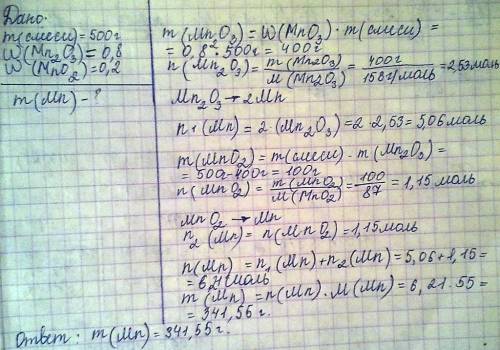 Дано:
m(смеси)=500г
W(Mn₂O₃)=0,8
W(MnO₂)=0,2
m(Mn)-?
m(Mn₂O₃)=W(MnO₃)·m(смеси)=
=0,8·500г=400г
n(Mn₂O₃)=m(Mn2O3)/M(Mn2O3)=400г/158г/моль=2,53моль
Mn₂O₃→2Mn
n₁(Mn)=2·(Mn₂O₃)=2·2,53=5,06моль
m(MnO₂)=m(смеси)-m(Mn₂O₃)=
=500г-400г=100г
n(MnO₂)=m(MnO₂)/M(MnO₂)=100/87=1,15моль
MnO₂→Mn
n₂(Mn)=n(MnO₂)=1,15моль
n(Mn)=n₁(Mn)+n₂(Mn)=5,06+1,15=
=6,21моль
m(Mn)=n(Mn)·M(Mn)=6,21·55=
=341,55г.
Ответ: m(Mn)=341,55г.